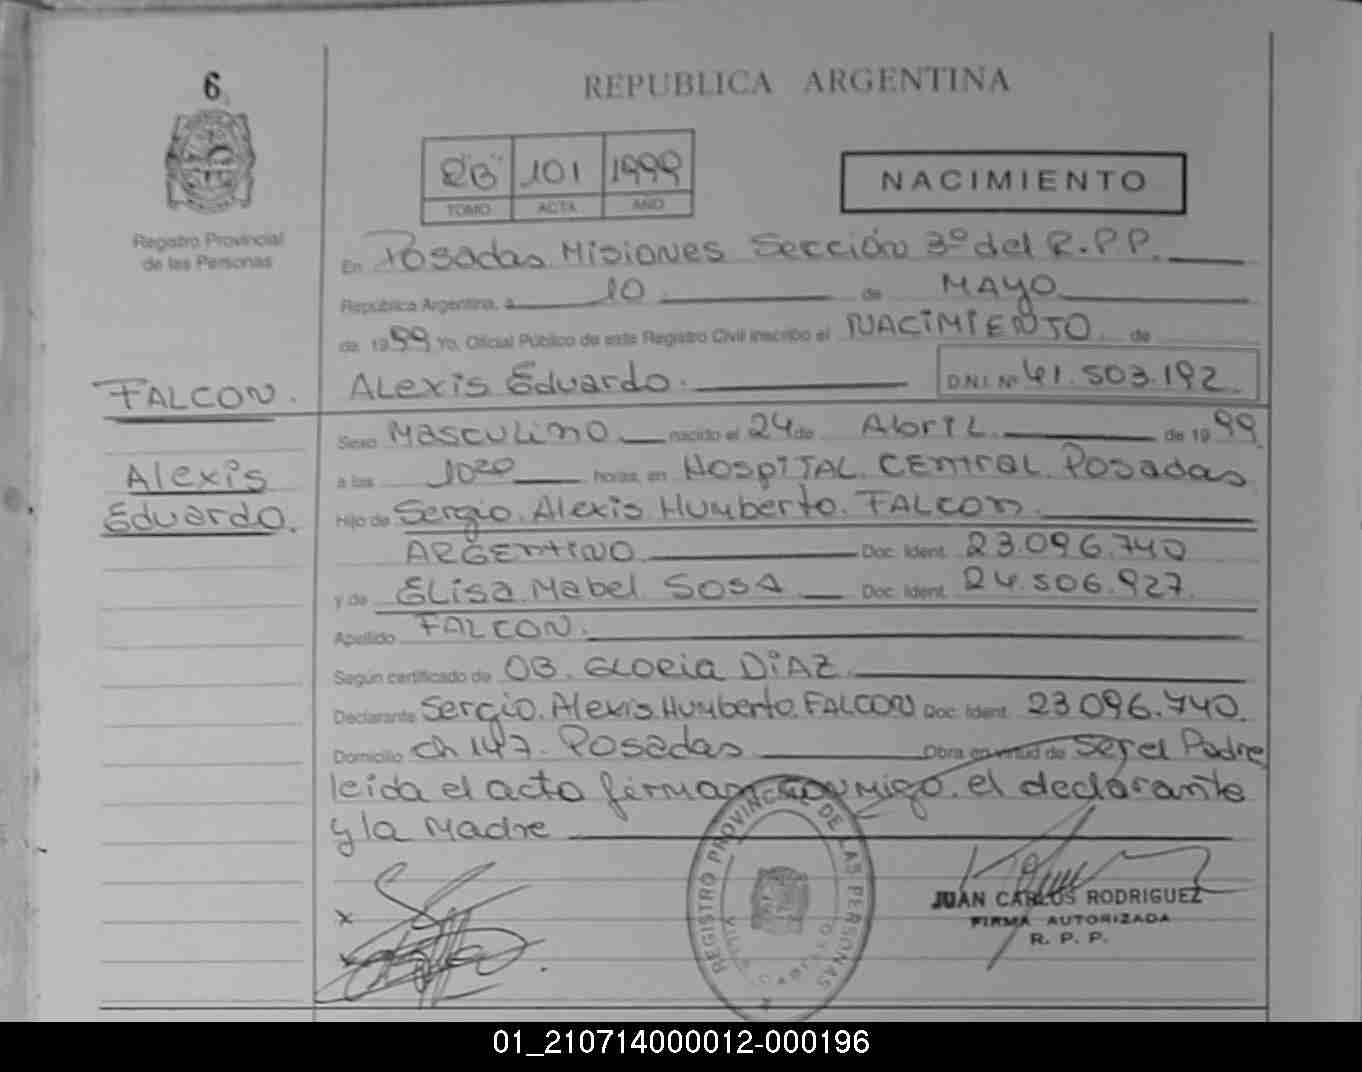 6
REPUBLICA ARGENTINA
2"B" 101 1999
TOMO ACTA AÑO
NACIMIENTO
Registro Provincial
de las Personas
En Posadas Misiones Sección 3º del R.P.P.
República Argentina, a 10 de MAYO
de 1999 Yo, Oficial Público de este Registro Civil inscribo el NACIMIENTO de
FALCON. Alexis Eduardo. D.N.I. Nº 41.503.192
Sexo Masculino nacido el 24 de Abril de 1999
Alexis
Eduardo.
a las 10 20 horas, en Hospital Central Posadas
Hijo de Sergio Alexis Humberto FALCON
ARGENTINO Doc. Ident. 23.096.740
y de Elisa Mabel SOSA Doc. Ident. 24.506.927
Apellido FALCON.
Según certificado de OB. Gloria DiAZ
Declarante Sergio Alexis Humberto FALCON Doc. Ident. 23096.740.
Domicilio Ch 147. Posadas Obra en virtud de Ser el Padre
leida el acto firman conmigo el declarante
y la Madre
REGISTRO PROVINCIAL DE LAS PERSONAS
VILLA CABELLO
JUAN CARLOS RODRIGUEZ
FIRMA AUTORIZADA
R. P. P.
01_210714000012-000196